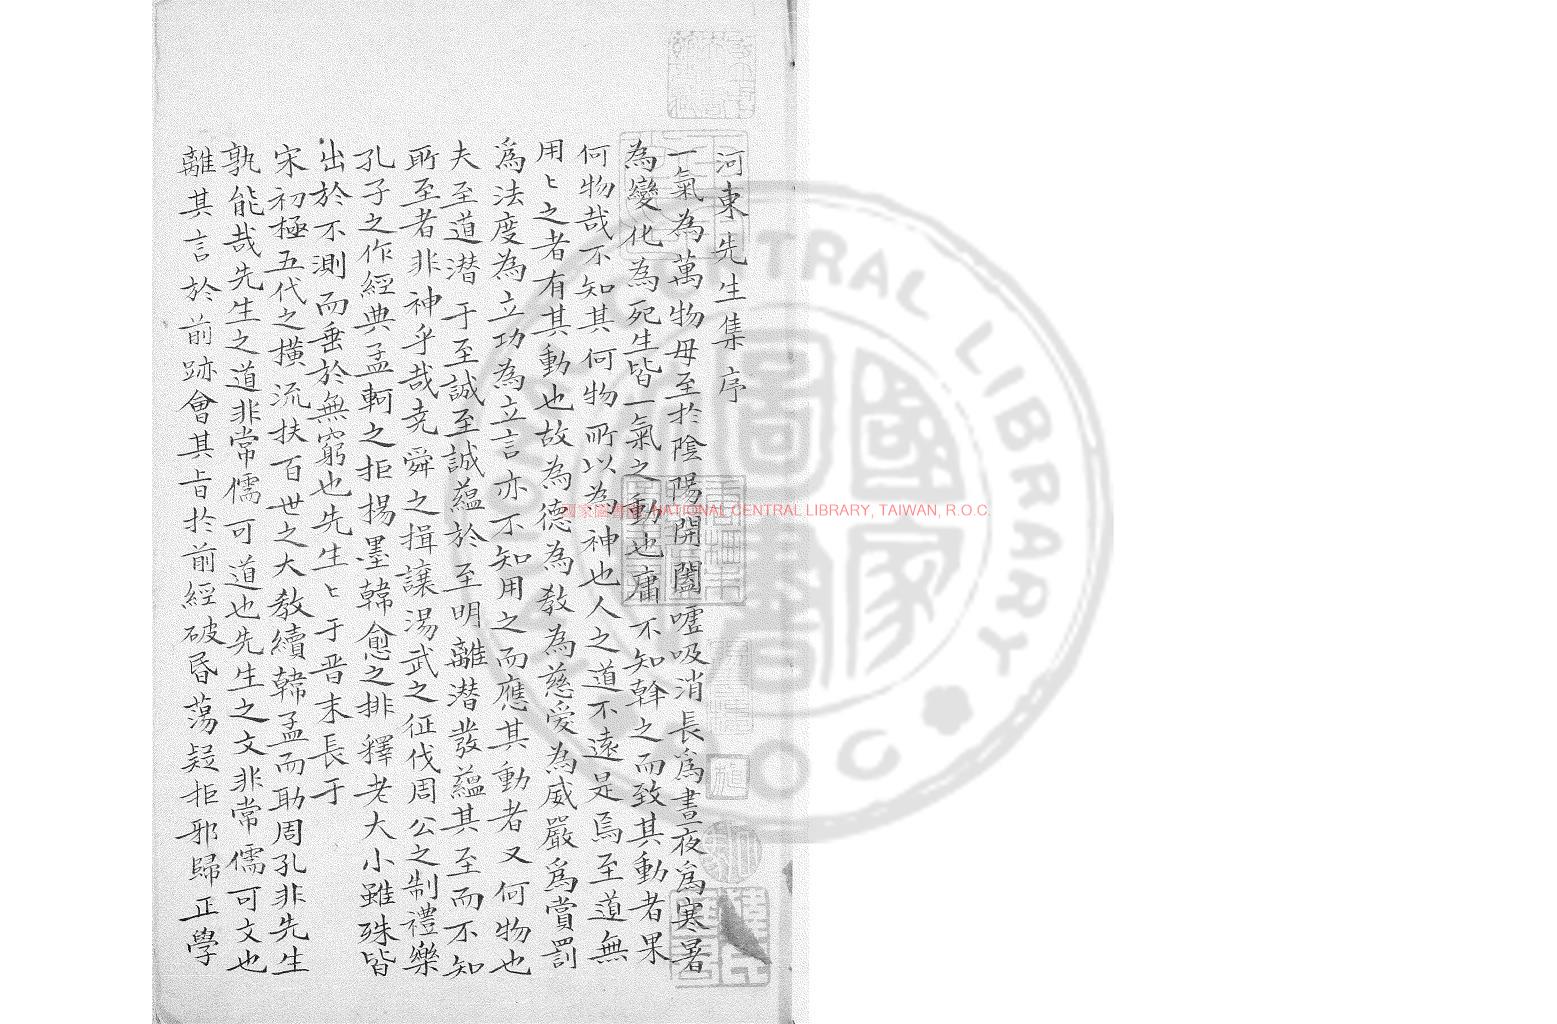 河東先生集序
一氣為萬物母至於陰陽開闔噓吸消長爲晝夜爲寒暑
為變化為死生皆一氣之動也庸不知斡之而致其動者果
何物哉不知其何物所以為神也人之道不遠是焉至道無
用〻之者有其動也故為德為教為慈愛為威嚴爲賞罰
爲法度為立功為立言亦不知用之而應其動者又何物也
夫至道潜于至誠至誠蘊於至明離潜發蘊其至而不知
所至者非神乎哉堯舜之揖讓湯武之征伐周公之制禮樂
孔子之作經典孟軻之拒楊墨韓愈之排釋老大小雖殊皆
出於不測而垂於無窮也先生〻于晋末長于
宋初極五代之橫流扶百世之大教續韓孟而助周孔非先生
孰能哉先生之道非常儒可道也先生之文非常儒可文也
離其言於前跡會其旨於前經破昏蕩疑拒邪歸正學
國家圖書館 NATIONAL CENTRAL LIBRARY, TAIWAN, R.O.C
NATIONAL CENTRAL LIBRARY R O C
國家圖書